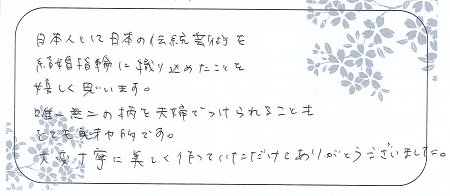 日本人として日本の伝統芸術を
結婚指輪に織り込めたことを
嬉しく思います。
唯一無二の柄を夫婦でつけられることも
とても魅力的です。
大変丁寧に美しく作っていただけてありがとうございました。